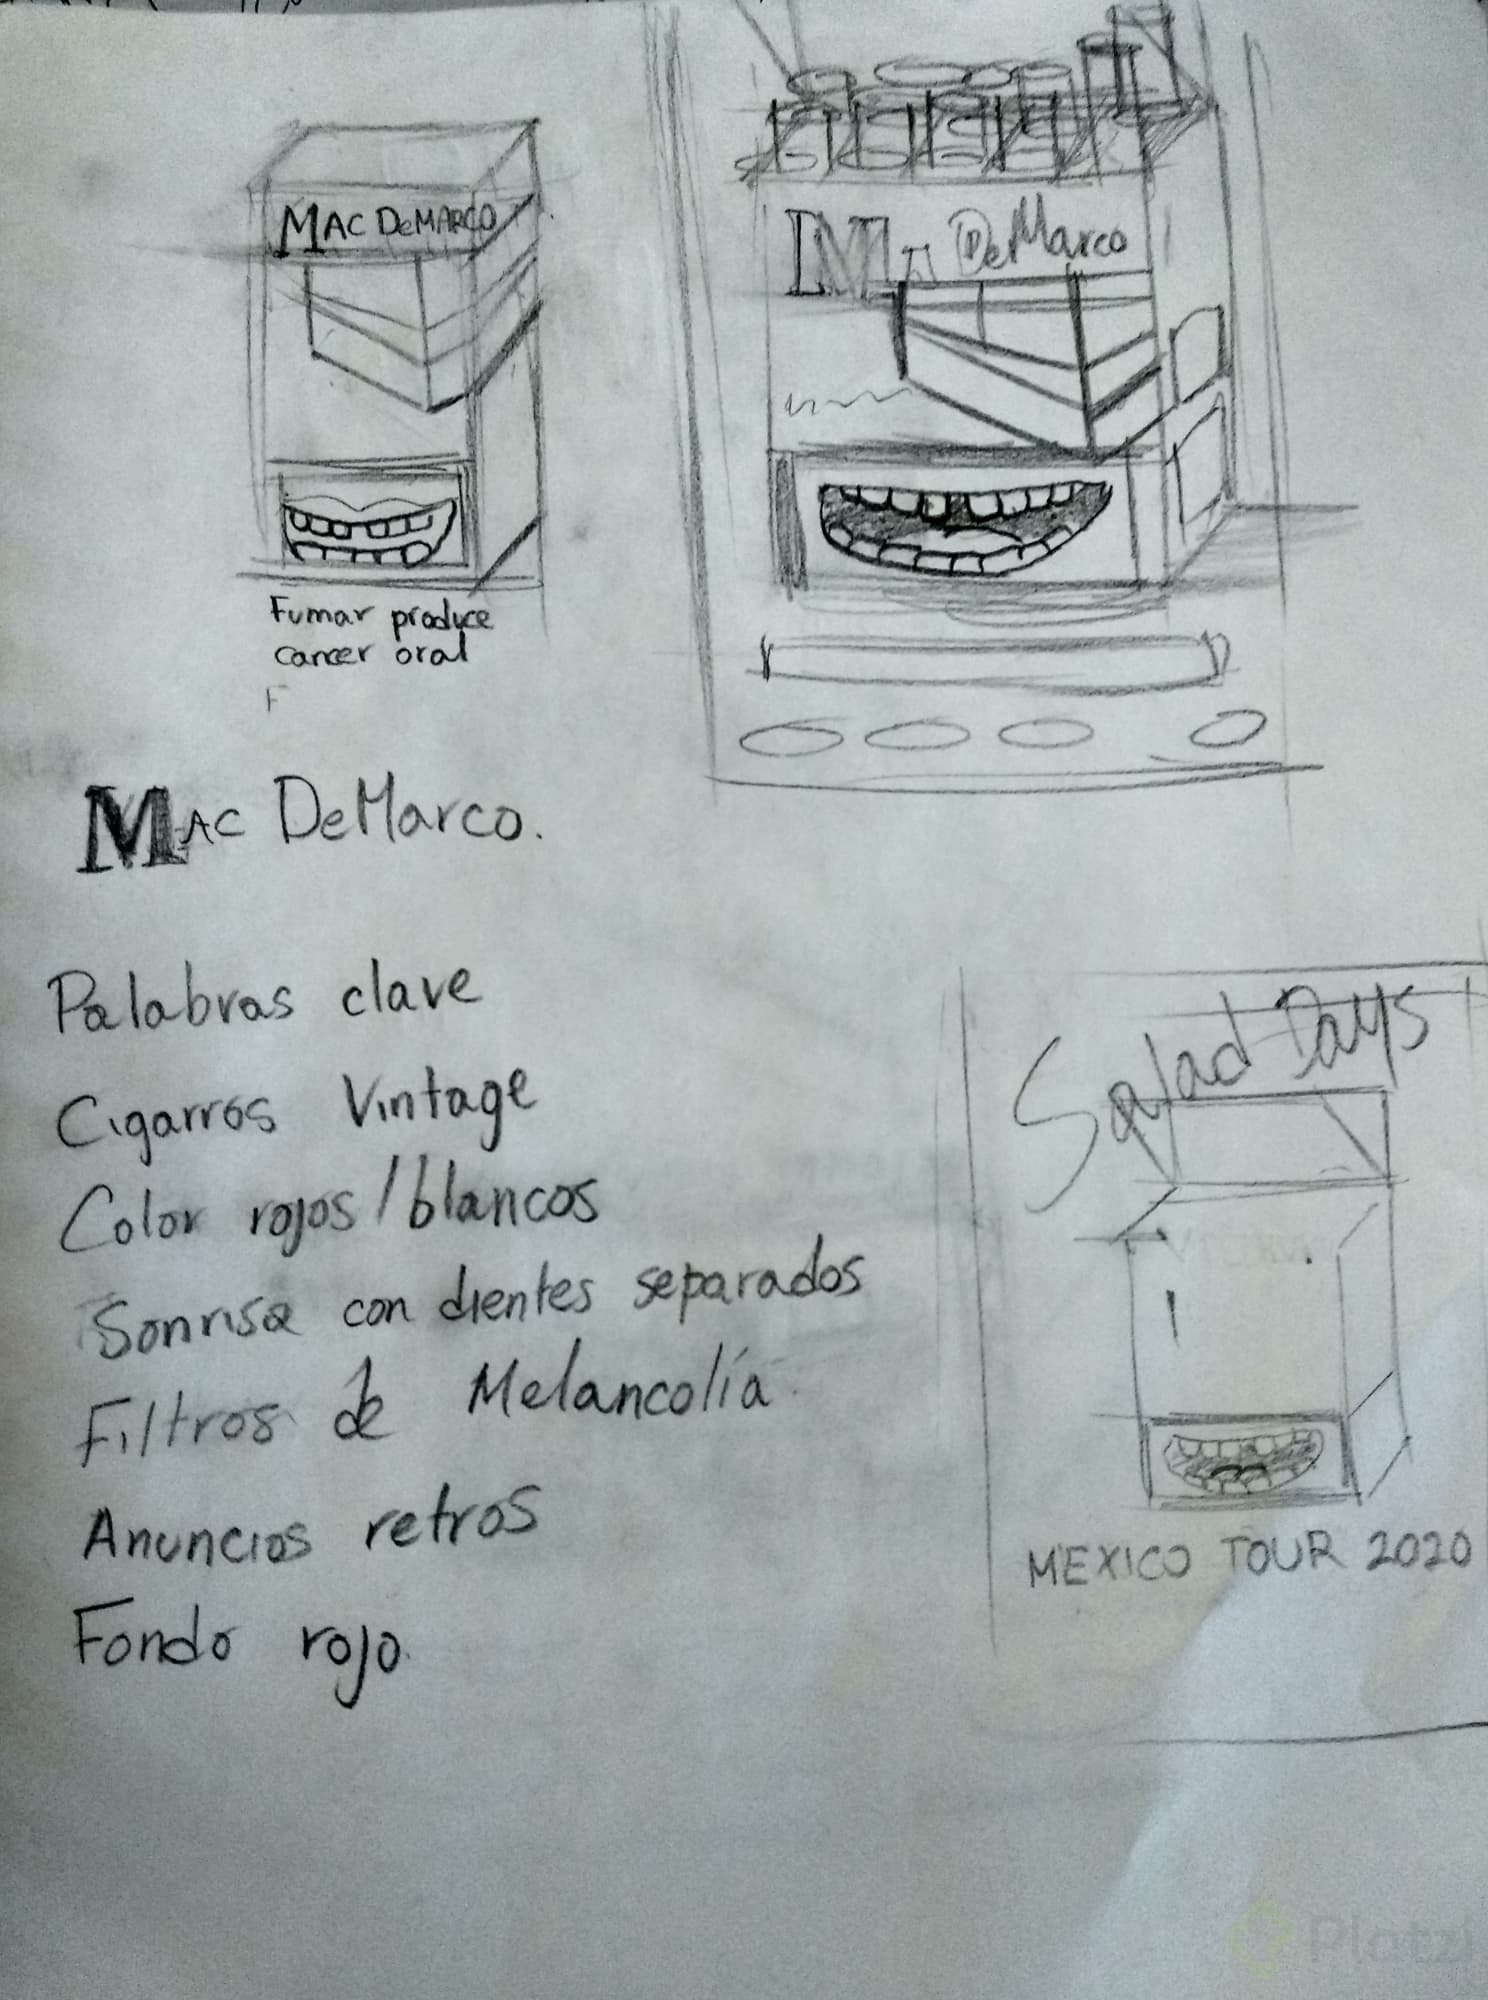 MAC DeMARCO
DeMarco
Fumar produce
cancer oral
F
MAC DeMarco.
Palabras clave
Cigarros Vintage
Color rojos/blancos
Sonrisa con dientes separados
Filtros de Melancolía
Anuncios retros
Fondo rojo.
Salad Days
MEXICO TOUR 2020
Platzi